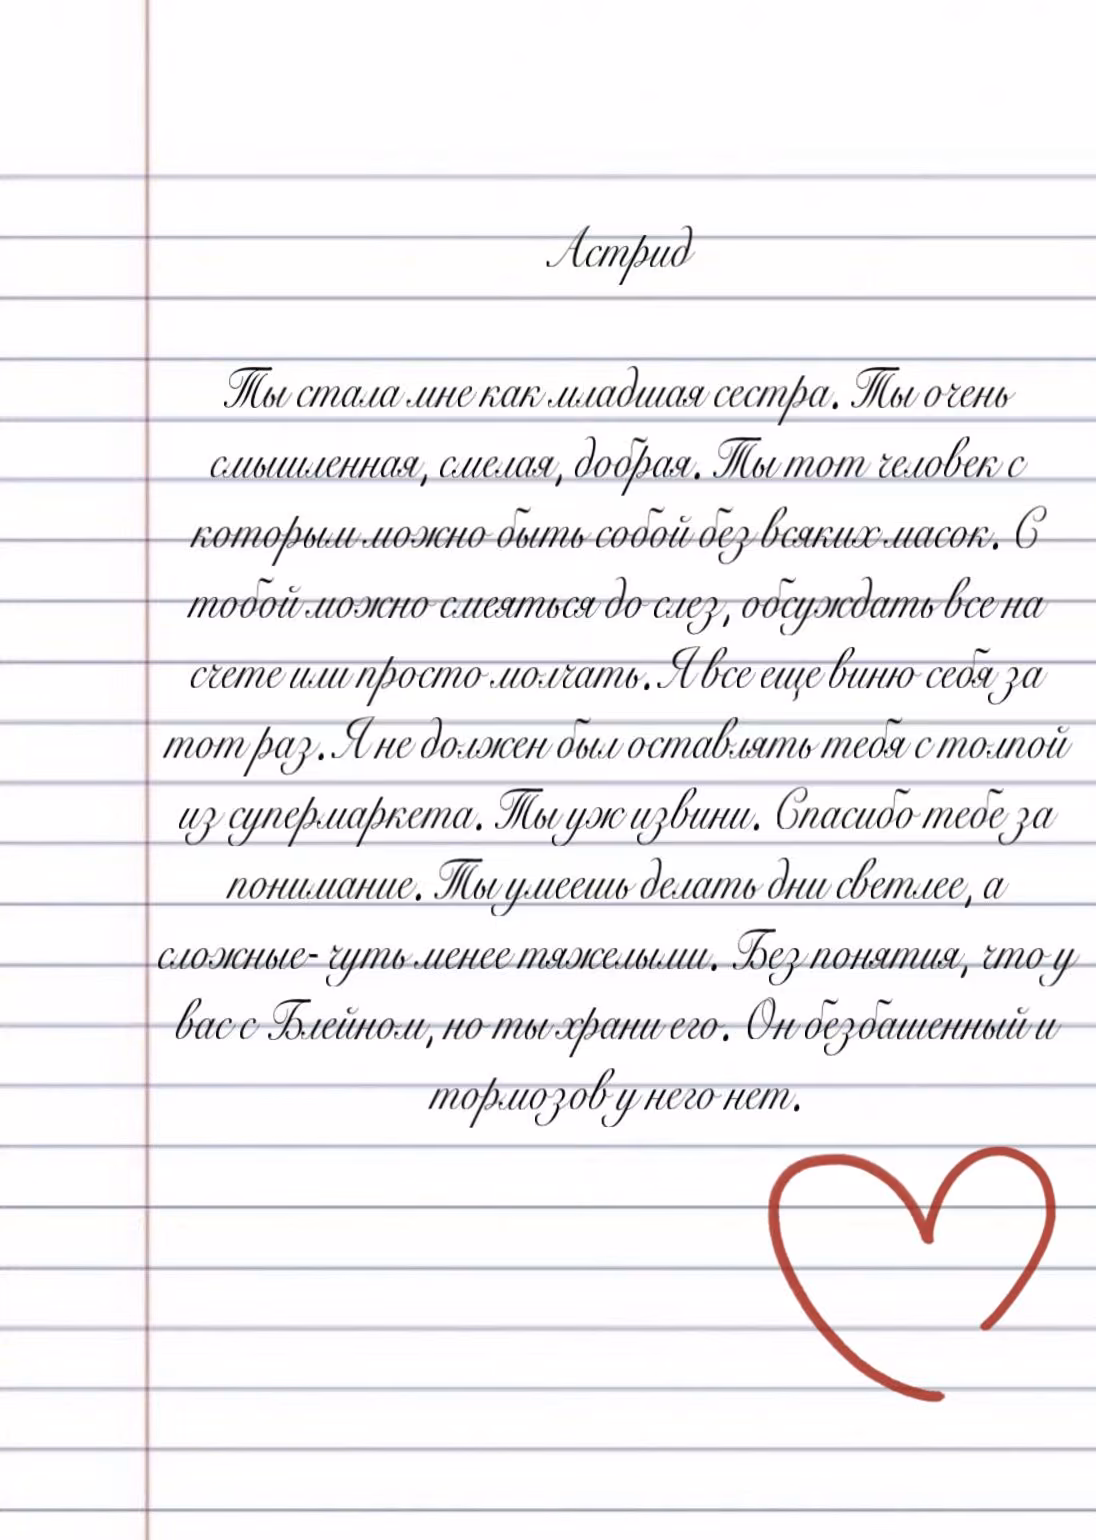 Астрид
Ты стала мне как младшая сестра. Ты очень
смышленная, смелая, добрая. Ты тот человек с
которым можно быть собой без всяких масок. С
тобой можно смеяться до слез, обсуждать все на
счете или просто молчать. Я все еще виню себя за
тот раз. Я не должен был оставлять тебя с толпой
из супермаркета. Ты уж извини. Спасибо тебе за
понимание. Ты умеешь делать дни светлее, а
сложные- чуть менее тяжелыми. Без понятия, что у
вас с Блейном, но ты храни его. Он безбашенный и
тормозов у него нет.